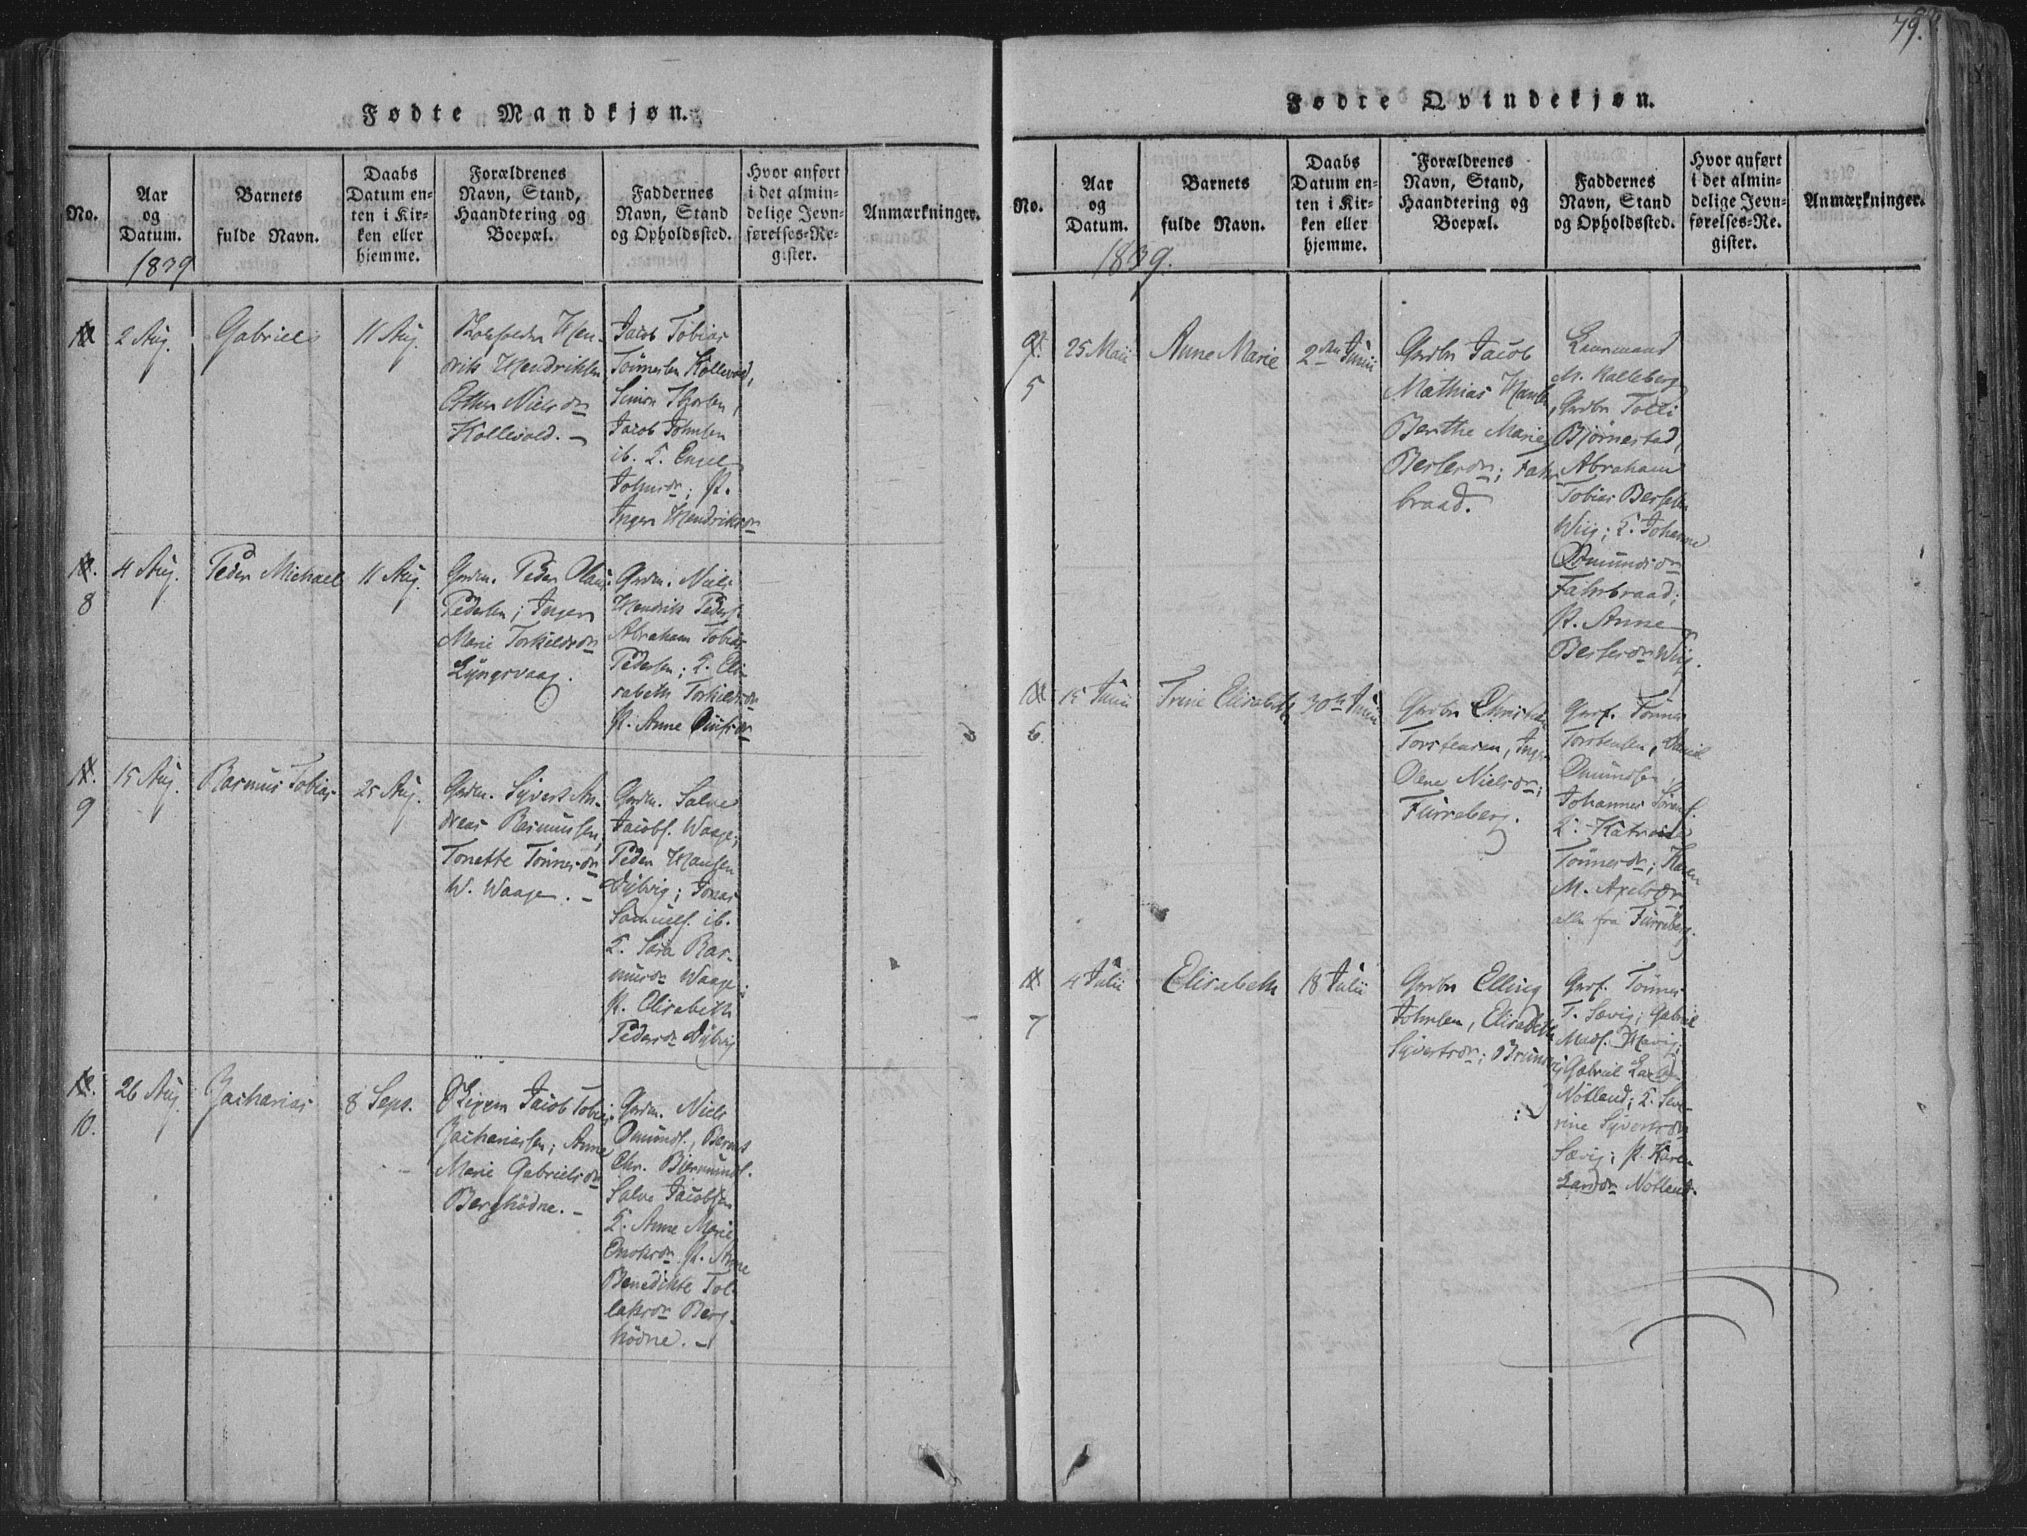 79.
Fødte Mandkjøn.
No.
Aar
og
Datum.
Barnets
fulde Navn.
Daabs
Datum en-
ten i Kir-
ken eller
hjemme.
Forældrenes
Navn, Stand,
Haandtering og
Boepæl.
Faddernes
Navn, Stand
og Opholdssted.
Hvor anført
i det almin-
delige Jevn-
førelses-Re-
gister.
Anmærkninger.
1839
2 Aug.
Gabriel
11 Aug.
Hen-
drik Hendriksen
Esther Nielsdr
Kollevold. –
Jacob Tobias
Tönnesen Kollevold,
Simon
Jacob Johnsen
ib. T. Engel
Johnsdr; P.
Inger Hendriksdr
8
4 Aug.
Peder Michael
11 Aug.
Grdm. Peder Olaus
Pedersen; Inger
Marie Torkildsdr
Lyngsvaag.
Grdm. Niels
Hendrik Peders.
Abraham Tobias
Pedersen; T. Eli-
sabeth Torkildsdr
P. Anne
9
15 Aug.
Rasmus Tobias
25 Aug.
Grdm. Syvert An-
dreas Rasmussen,
Tonette Tönnesdr
W. Waage. –
Grdm. Salve
Jacobs. Waage;
Peder Hansen
Dybvig; Jonas
Samuels. ib.
T. Sara Ras-
musdr Waage;
P. Elisabeth
Pedersdr Dybvig
10.
26 Aug.
Zacharias
8 Sept.
Jacob Tobias
Zachariassen; Anne
Marie Gabrielsdr
Berghödne. –
Grdm. Niels
Omunds., Bernt
Chr. Bjermunds.
Salve Jacobsen
T. Anne Marie
Enoksdr P. Anne
Benedikte Tol-
laksdr Berg-
hödne. –
Fødte Qvindekjøn.
No.
Aar
og
Datum.
Barnets
fulde Navn.
Daabs
Datum en-
ten i Kir-
ken eller
hjemme.
Forældrenes
Navn, Stand,
Haandtering og
Boepæl.
Faddernes
Navn, Stand
og Opholdssted.
Hvor anført
i det almin-
delige Jevn-
førelses-Re-
gister.
Anmærkninger.
1839.
5
25 Maii
Anne Marie
2den Junii
Grdbr Jacob
Mathias Hansen,
Berthe Marie
Bersesdr; Fahr
braad.
Lensmand
M. Kalleberg
Grdbr Tolli
Björnestad,
Abraham
Tobias Bersesen
Wiig; T. Johanne
Omundsdr
Fahrbraad;
P. Anne
Bersesdr Wiig.
6.
15 Junii
Trine Elisabeth
30te Junii
Grdbr Christian
Torstensen, Inger
Oene Nielsdr;
Fürreberg.
Grds. Tönnes
Torstensen, Daniel
Omundsen,
Johannes Sörens.
T. Katrine
Tönnesdr; Karen
M. Axelsdr
alle fra Fürreberg.
7
4 Julii
Elisabeth
18 Julii
Grdbr Elling
Johnsen, Elisabeth
Syvertsdr;
Grds. Tönnes
T. Sævig; Gabriel
Mads. Havig;
Gabriel Lars.
Nötland; T. Seve-
rine Syvertsdr
Sævig; P. Karen
Larsdr Nötland.